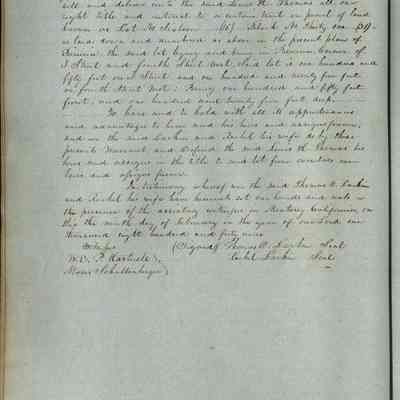 sell and deliver unto the said Lewis H. Thomas all our
right title and interest to a certain tract or parcel of land
known as Lot No. eleven (16) Block No. Thirty one (31)
as laid down and numbered as above in the present plan of
Benicia, the said lot lying and being in Benicia corner of
I Street and fourth Street West. Said lot is one hundred and
fifty feet on I Street and one hundred and twenty five feet
on fourth Street West; Being one hundred and fifty feet
front, and one hundred and twenty five feet deep.
To have and to hold with all its appendances
and advantages to him and his heirs and assigns forever,
and we the said Larkin and Rachel his wife do by these
presents Warrant and Defend the said Lewis H. Thomas his
heirs and assigns in the title to said lot from ourselves our
heirs and assigns forever.
In testimony whereof we the said Thomas O. Larkin
and Rachel his wife have hereunto set our hands and seals in
the presence of the attesting witnesses in Monterey California on
this the ninth day of February in the year of our Lord one
thousand eight hundred and forty nine.
Witness (Signed) Thomas O. Larkin Seal
W. E. P. Hartnell, Rachel Larkin Seal
Moses Schallenberger,